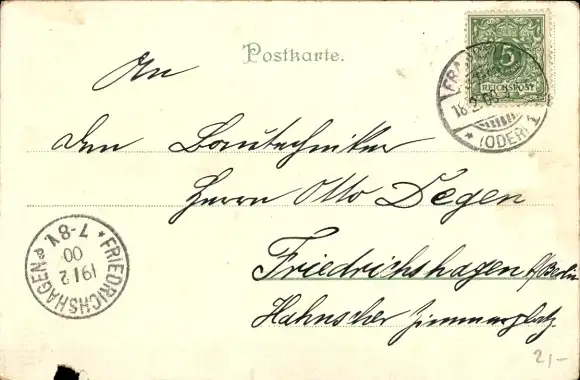 Postkarte.
5
REICHSPOST
FRANKFURT
(ODER) 1
An
den Bautechniker
Herrn Otto Degen
Friedrichshagen b/Berlin
Hahnscher Zimmerplatz.
* FRIEDRICHSHAGEN
19 / 2
00
7-8V.
2,-